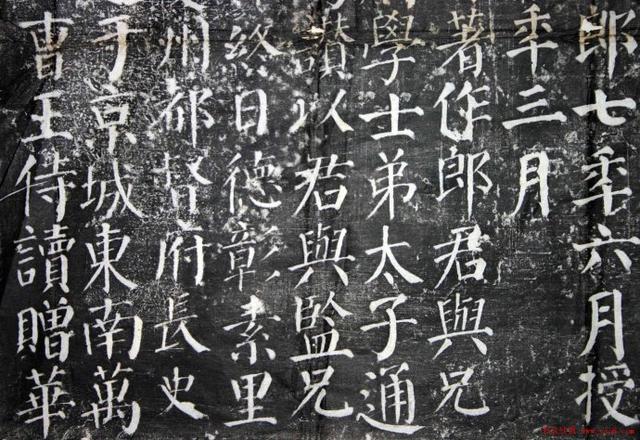 郎七年六月授
年三月
著作郎君與兄
學士弟太子通
讃以君與監兄
終日德彰素里
州都督府長史
于京城東南萬
曹王侍讀贈華